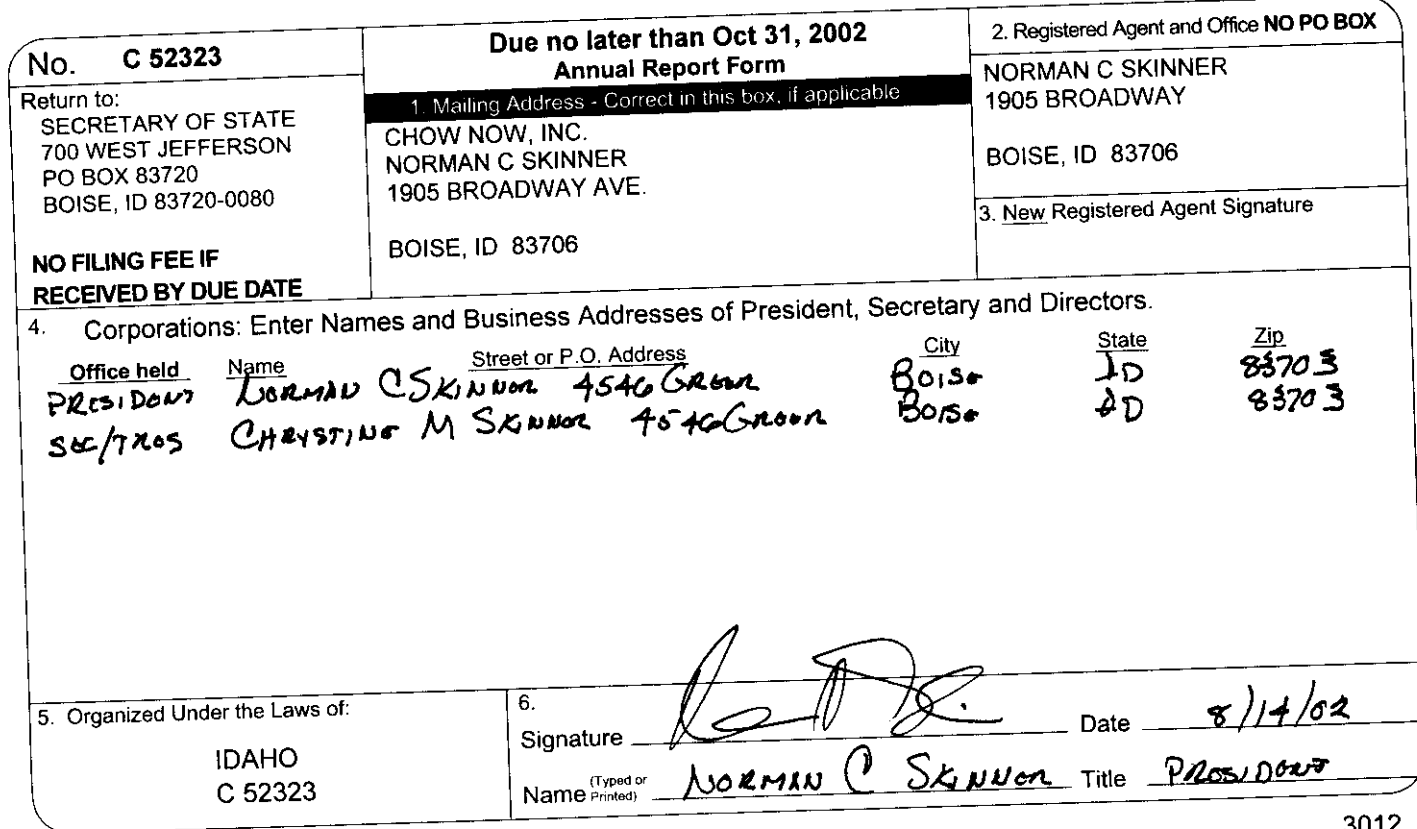 No. C 52323
Return to:
SECRETARY OF STATE
700 WEST JEFFERSON
PO BOX 83720
BOISE, ID 83720-0080
NO FILING FEE IF
RECEIVED BY DUE DATE
Due no later than Oct 31, 2002
Annual Report Form
1. Mailing Address - Correct in this box, if applicable
CHOW NOW, INC.
NORMAN C SKINNER
1905 BROADWAY AVE.
BOISE, ID 83706
2. Registered Agent and Office NO PO BOX
NORMAN C SKINNER
1905 BROADWAY
BOISE, ID 83706
3. New Registered Agent Signature
4. Corporations: Enter Names and Business Addresses of President, Secretary and Directors.
Office held Name Street or P.O. Address City State Zip
PRESIDENT NORMAN C SKINNER 4546 BOISE ID 83703
SEC/TRES CHRYSTINE M SKINNER 4546 BOISE ID 83703
5. Organized Under the Laws of:
IDAHO
C 52323
6.
Signature Date 8/14/02
Name (Typed or Printed) NORMAN C SKINNER Title PRESIDENT
3012